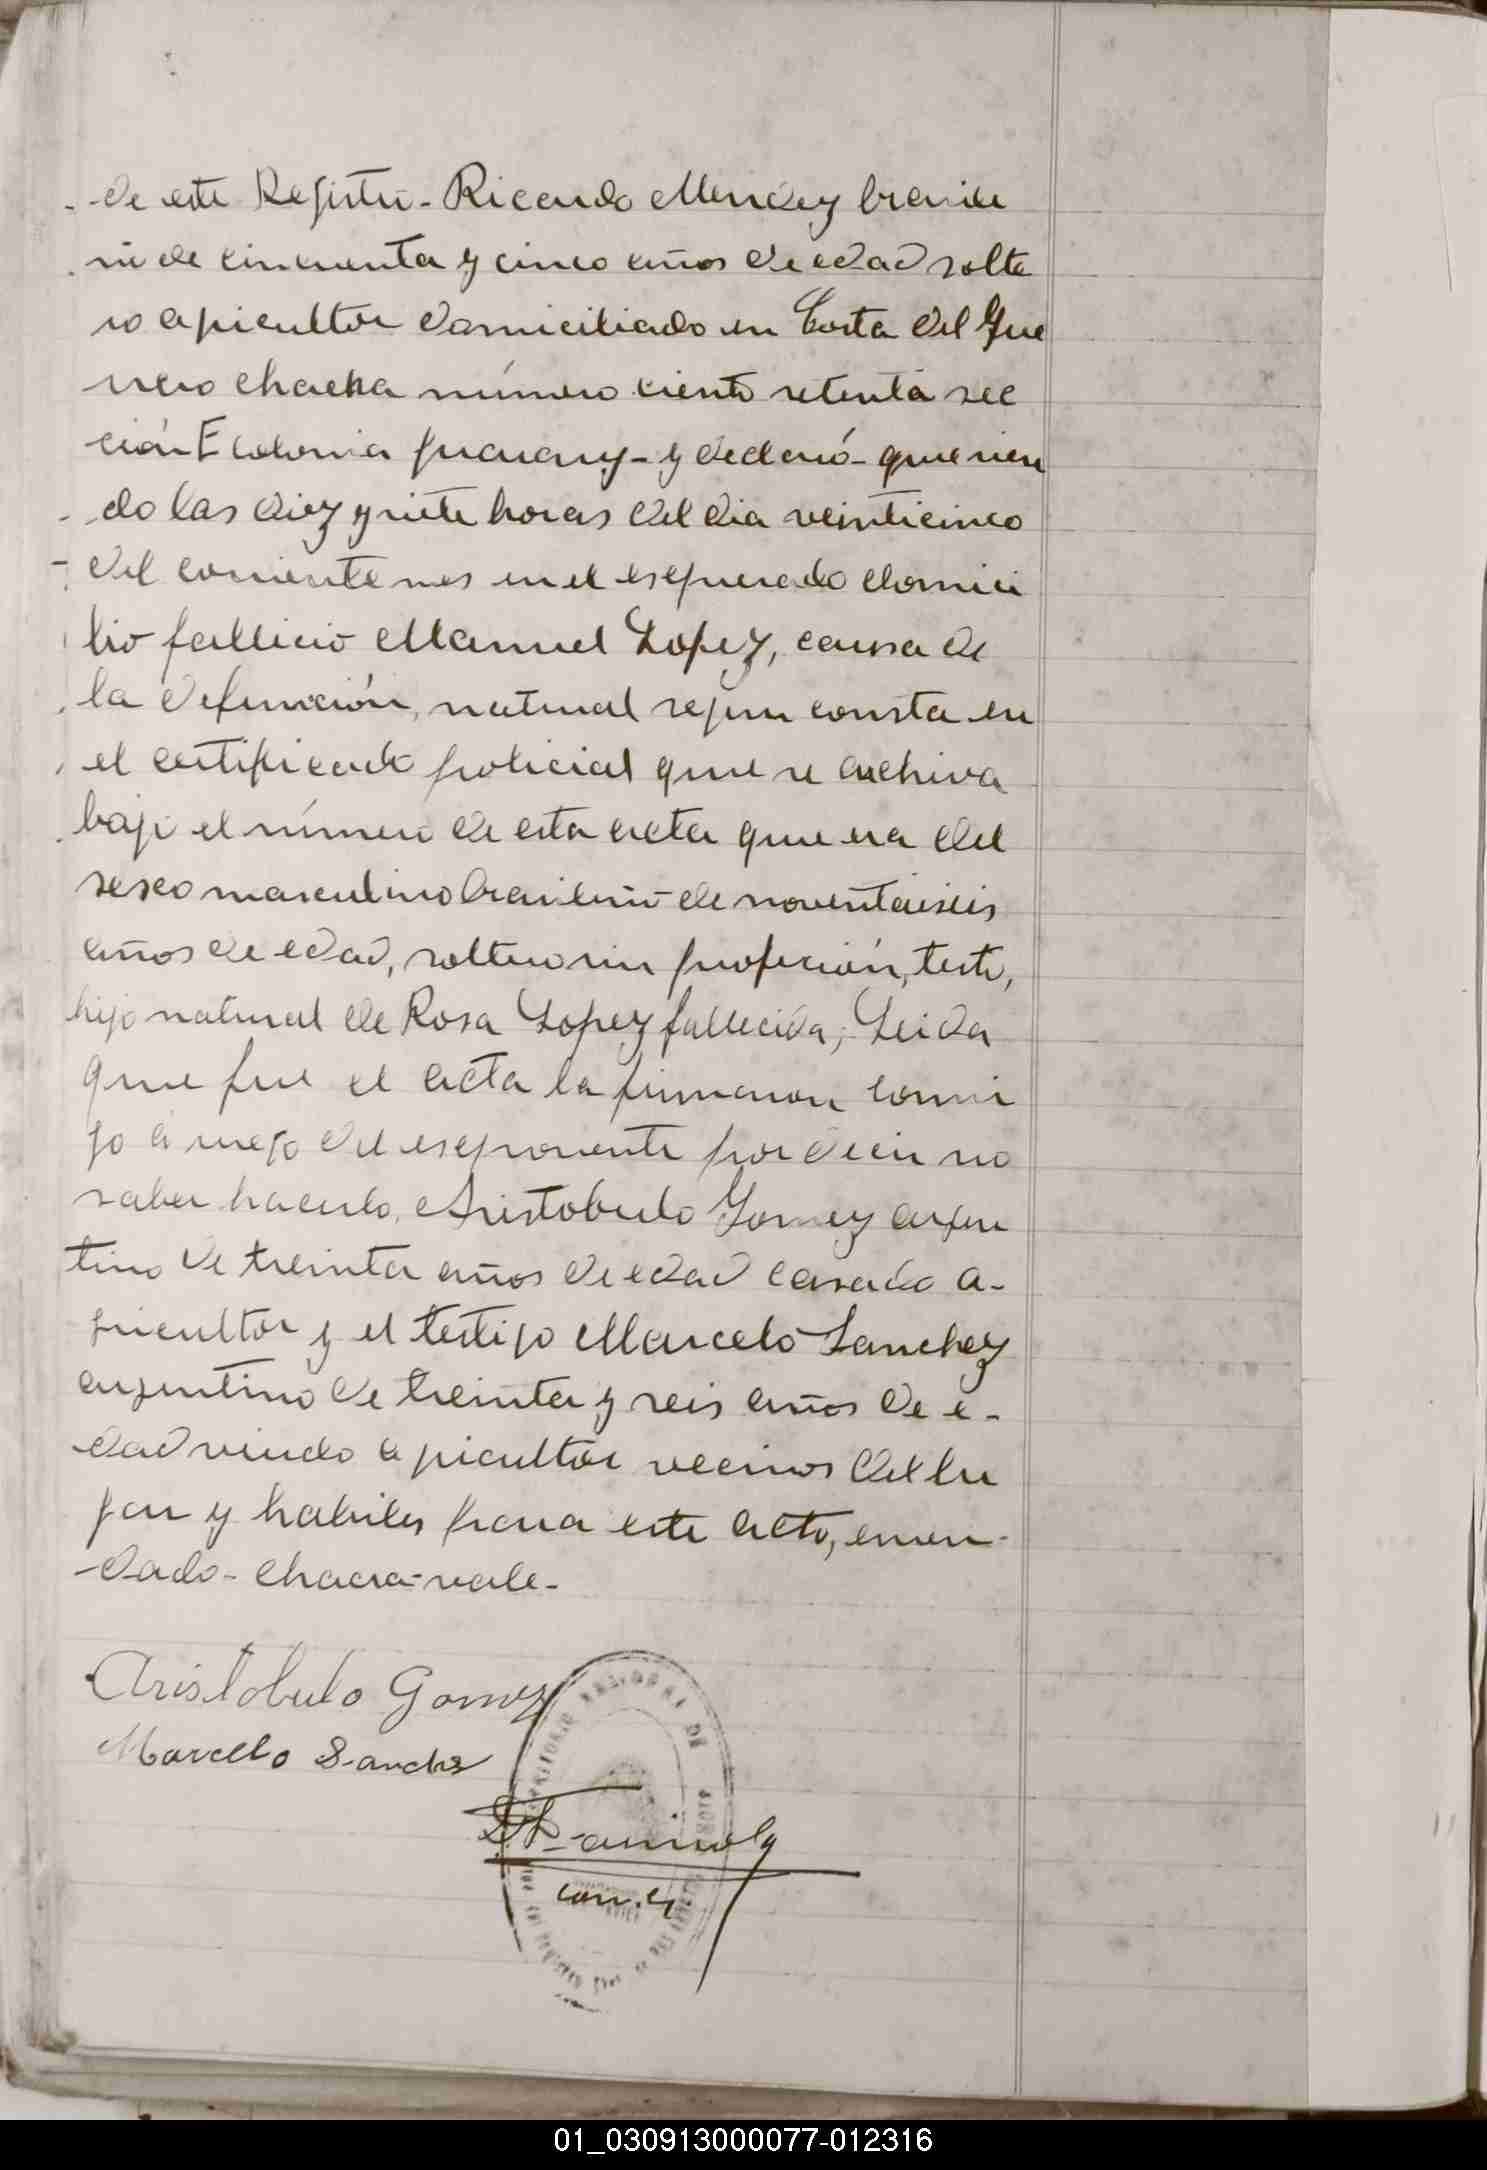 de este Registro - Ricardo Mendez brasile
ño de cincuenta y cinco años de edad solte
ro agricultor domiciliado en Costa del Gue
rrero chacra número ciento setenta sec
ción E colonia Yucuary - y declaró - que sien
do las diez y siete horas del dia veinticinco
del corriente mes en el espresado domici
lio falleció Manuel Lopez, causa de
la defunción, natural segun consta en
el certificado policial que se archiva
bajo el número de esta acta que era del
sexo masculino brasileño de noventaiseis
años de edad, soltero sin profesión, testó,
hijo natural de Rosa Lopez fallecida; Leida
que fue el acta la firmaron conmi
go á ruego del esponente por decir no
saber hacerlo, Aristobulo Gomez argen
tino de treinta años de edad casado a-
gricultor y el testigo Marcelo Sanchez
argentino de treinta y seis años de e-
dad viudo agricultor vecinos del lu
gar y habiles para este acto, enmen-
dado - chacra - vale -
Aristobulo Gomez
Marcelo Sanchez
01_030913000077-012316